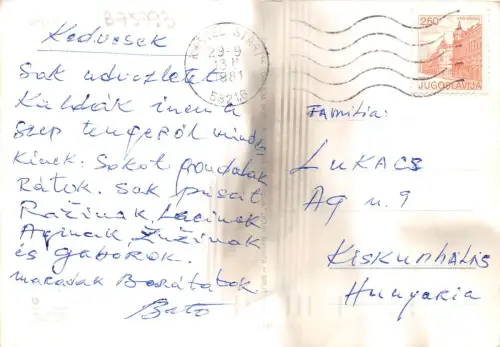 B73793
Kedvesek
Sok üdvözletet
Küldök inen a
szep tengeröl minde
Kinek. Sokat gondolok
Rátok. Sok pusit
Ražinak, Lacinak
Aginak, Žužinak
és gaborok.
maradok Barátatok
Bato
KAŠTEL STARI
29-9
13 H
1981
58218
250
JUGOSLAVIJA
FAMILIA:
LUKACS
Ag u. 9
KISKUNHALAS
Hungaria